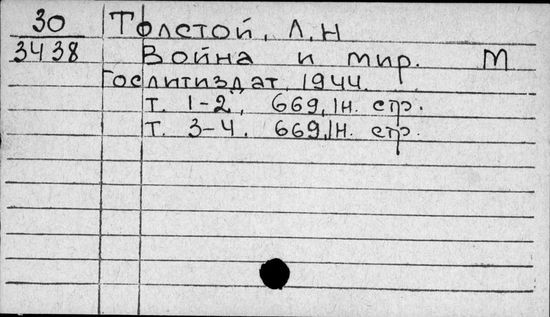 30 Толстой, Л.Н
3438 Война и мир. М
Гослитиздат 1944.
Т. 1-2, 669, 1н. стр.
Т. 3-4. 669, 1н. стр.